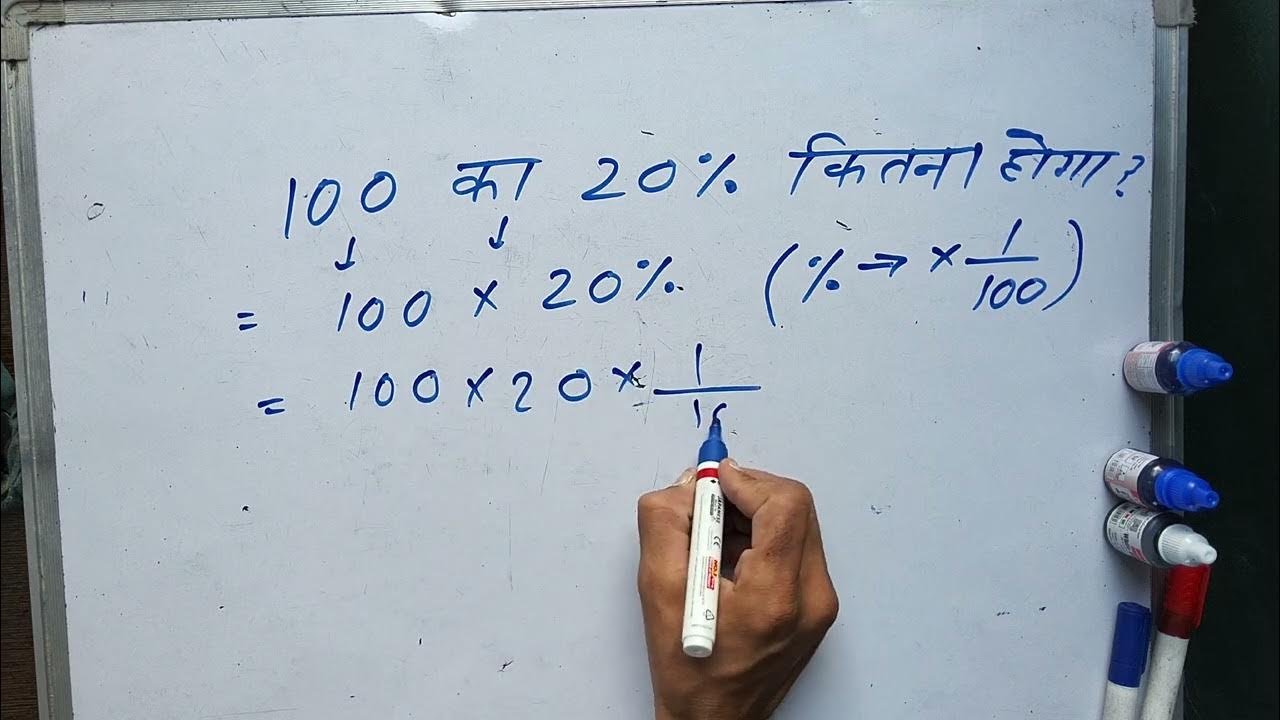 100 का 20% कितना होगा?
↓ ↓
= 100 × 20% (% → × 1/100)
= 100 × 20 × 1/10